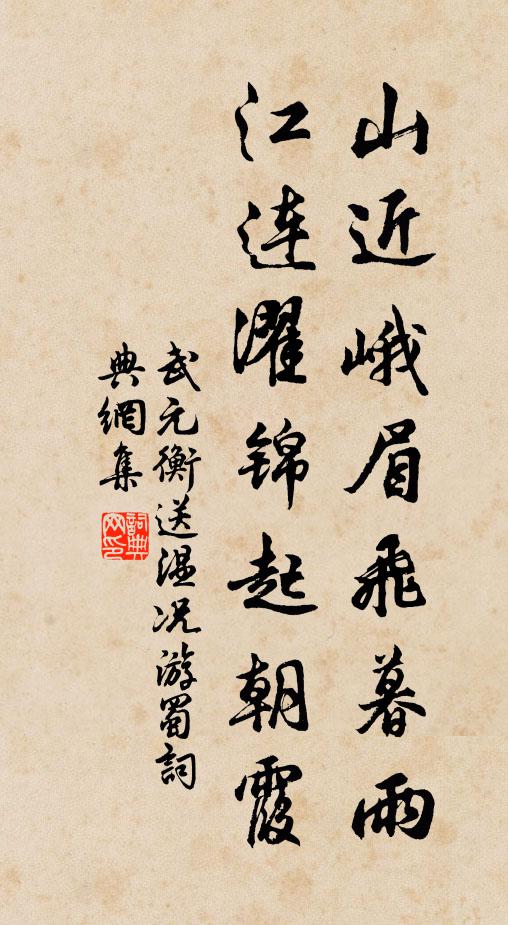 山近峨眉飛暮雨
江連濯錦起朝霞
武元衡送温況游蜀詞
典網集
詞典網印